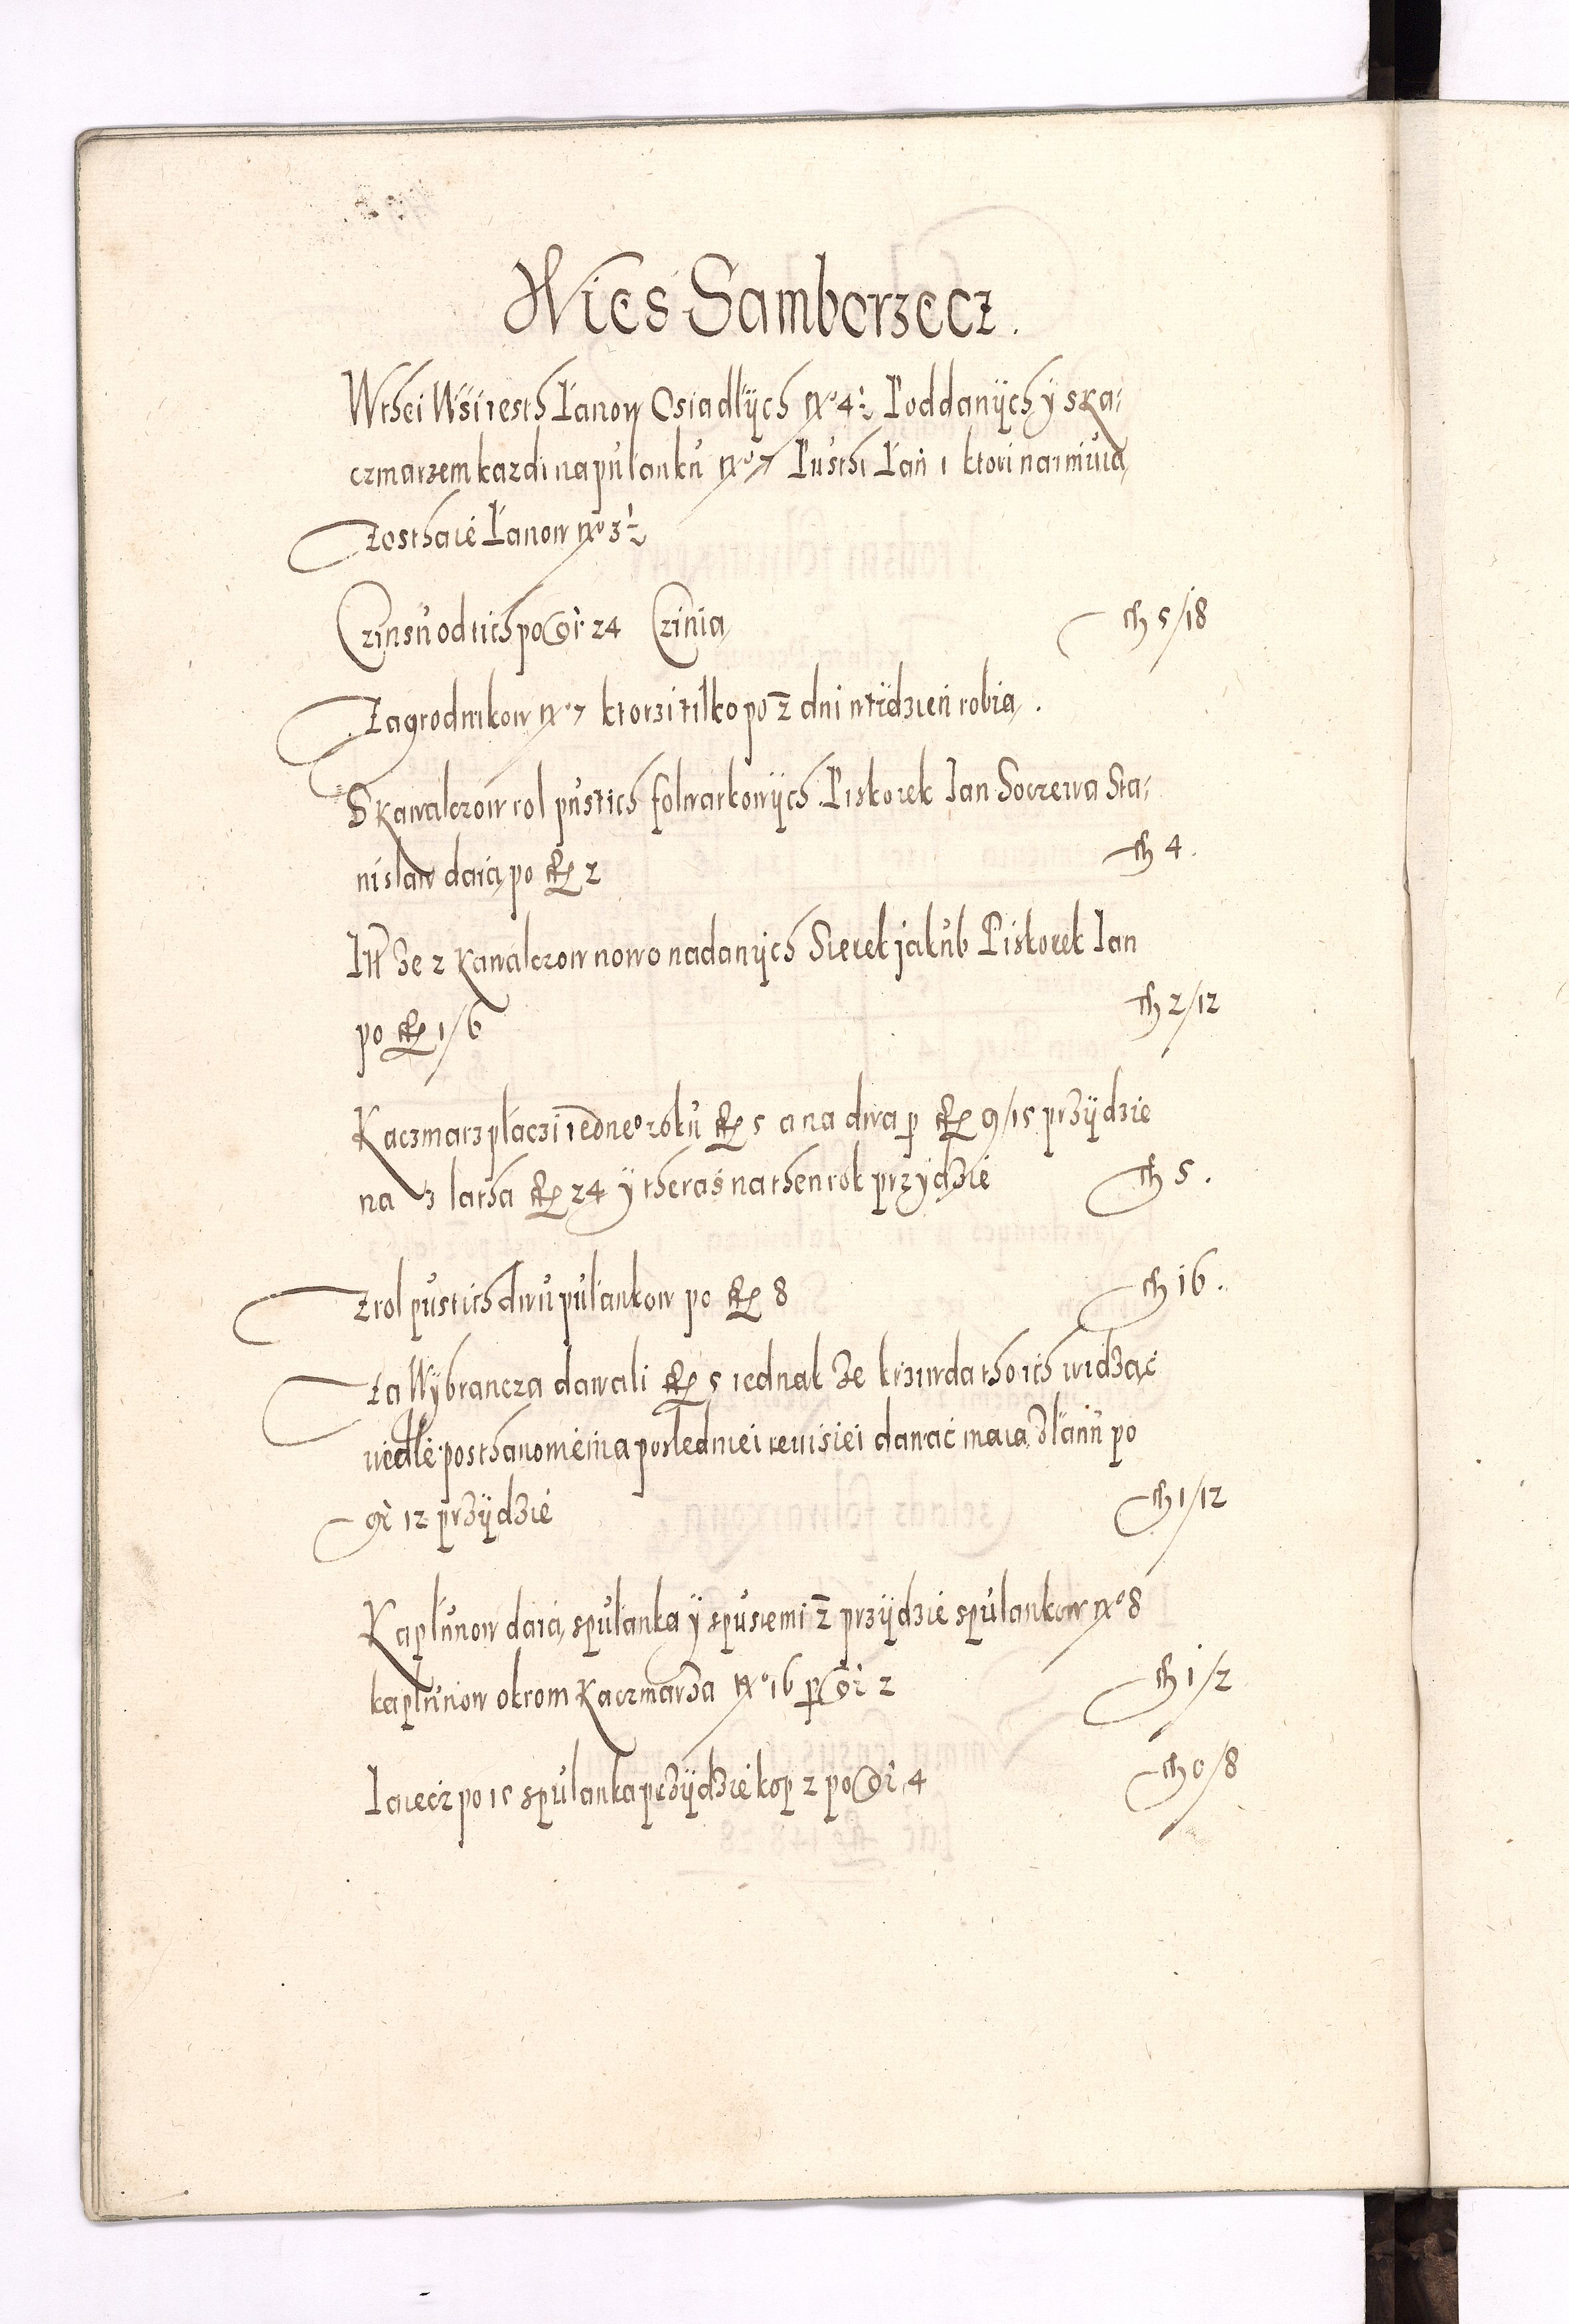 Wies Samborzecz.
Wthei Wsi iesth Łanow Osiadłÿch Nº 4½ Poddanÿch ÿ ska-
czmarzem kazdi na pułanku Nº 7 Pusthi Łan 1 ktori naimuią
Zosthaie Łanow Nº 3½
Czinsu od tich po Gr 24 Czinią fl 5/18
Zagrodnikow Nº 7 ktorzi tilko po 2 dni w tidzień robią.
S kawalczow rol pustich folwarkowÿch Piskorek Jan Soczewa Sta-
nisław daią po fl 2 fl 4.
Ite(m) ze 2 kawalczow nowo nadanÿch Sierek jakub Piskorek Jan
po fl 1/6 fl 2/12
Kaczmarz płaczi iedneº roku fl 5 a na dwa p fl 9/15 przÿdzie
na 3 latha fl 24 ÿ theraś na then rok przydzie fl 5.
Z rol pustich dwu pułankow po fl 8 fl 16.
Za Wÿbrancza dawali fl 5 iednak ze krziwda tho ich widząć
wedle posthanowienia posledniei rewisiei dawać maią z łanu po
gr 12 przÿdzie fl 1/12
Kapłunow daią s pułanka ÿ s pusiemi 2 przÿdzie s pułankow Nº 8
kapłunow okrom Kaczmarza Nº 16 p Gr 2 fl 1/2
Iaiecz po 15 s pułanka przÿdzie kop 2 po Gr 4 fl 0/8